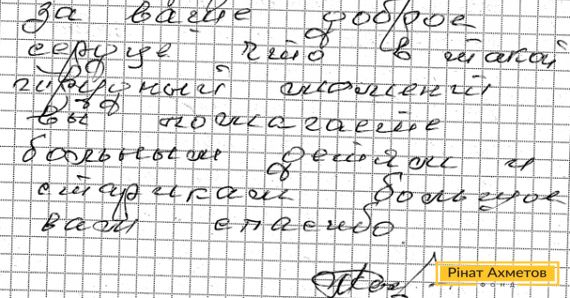 за ваше доброе
сердце что в такой
трудный момент
вы помагаете
больным детям и
старикам большое
вам спасибо.
Рінат Ахметов
ФОНД